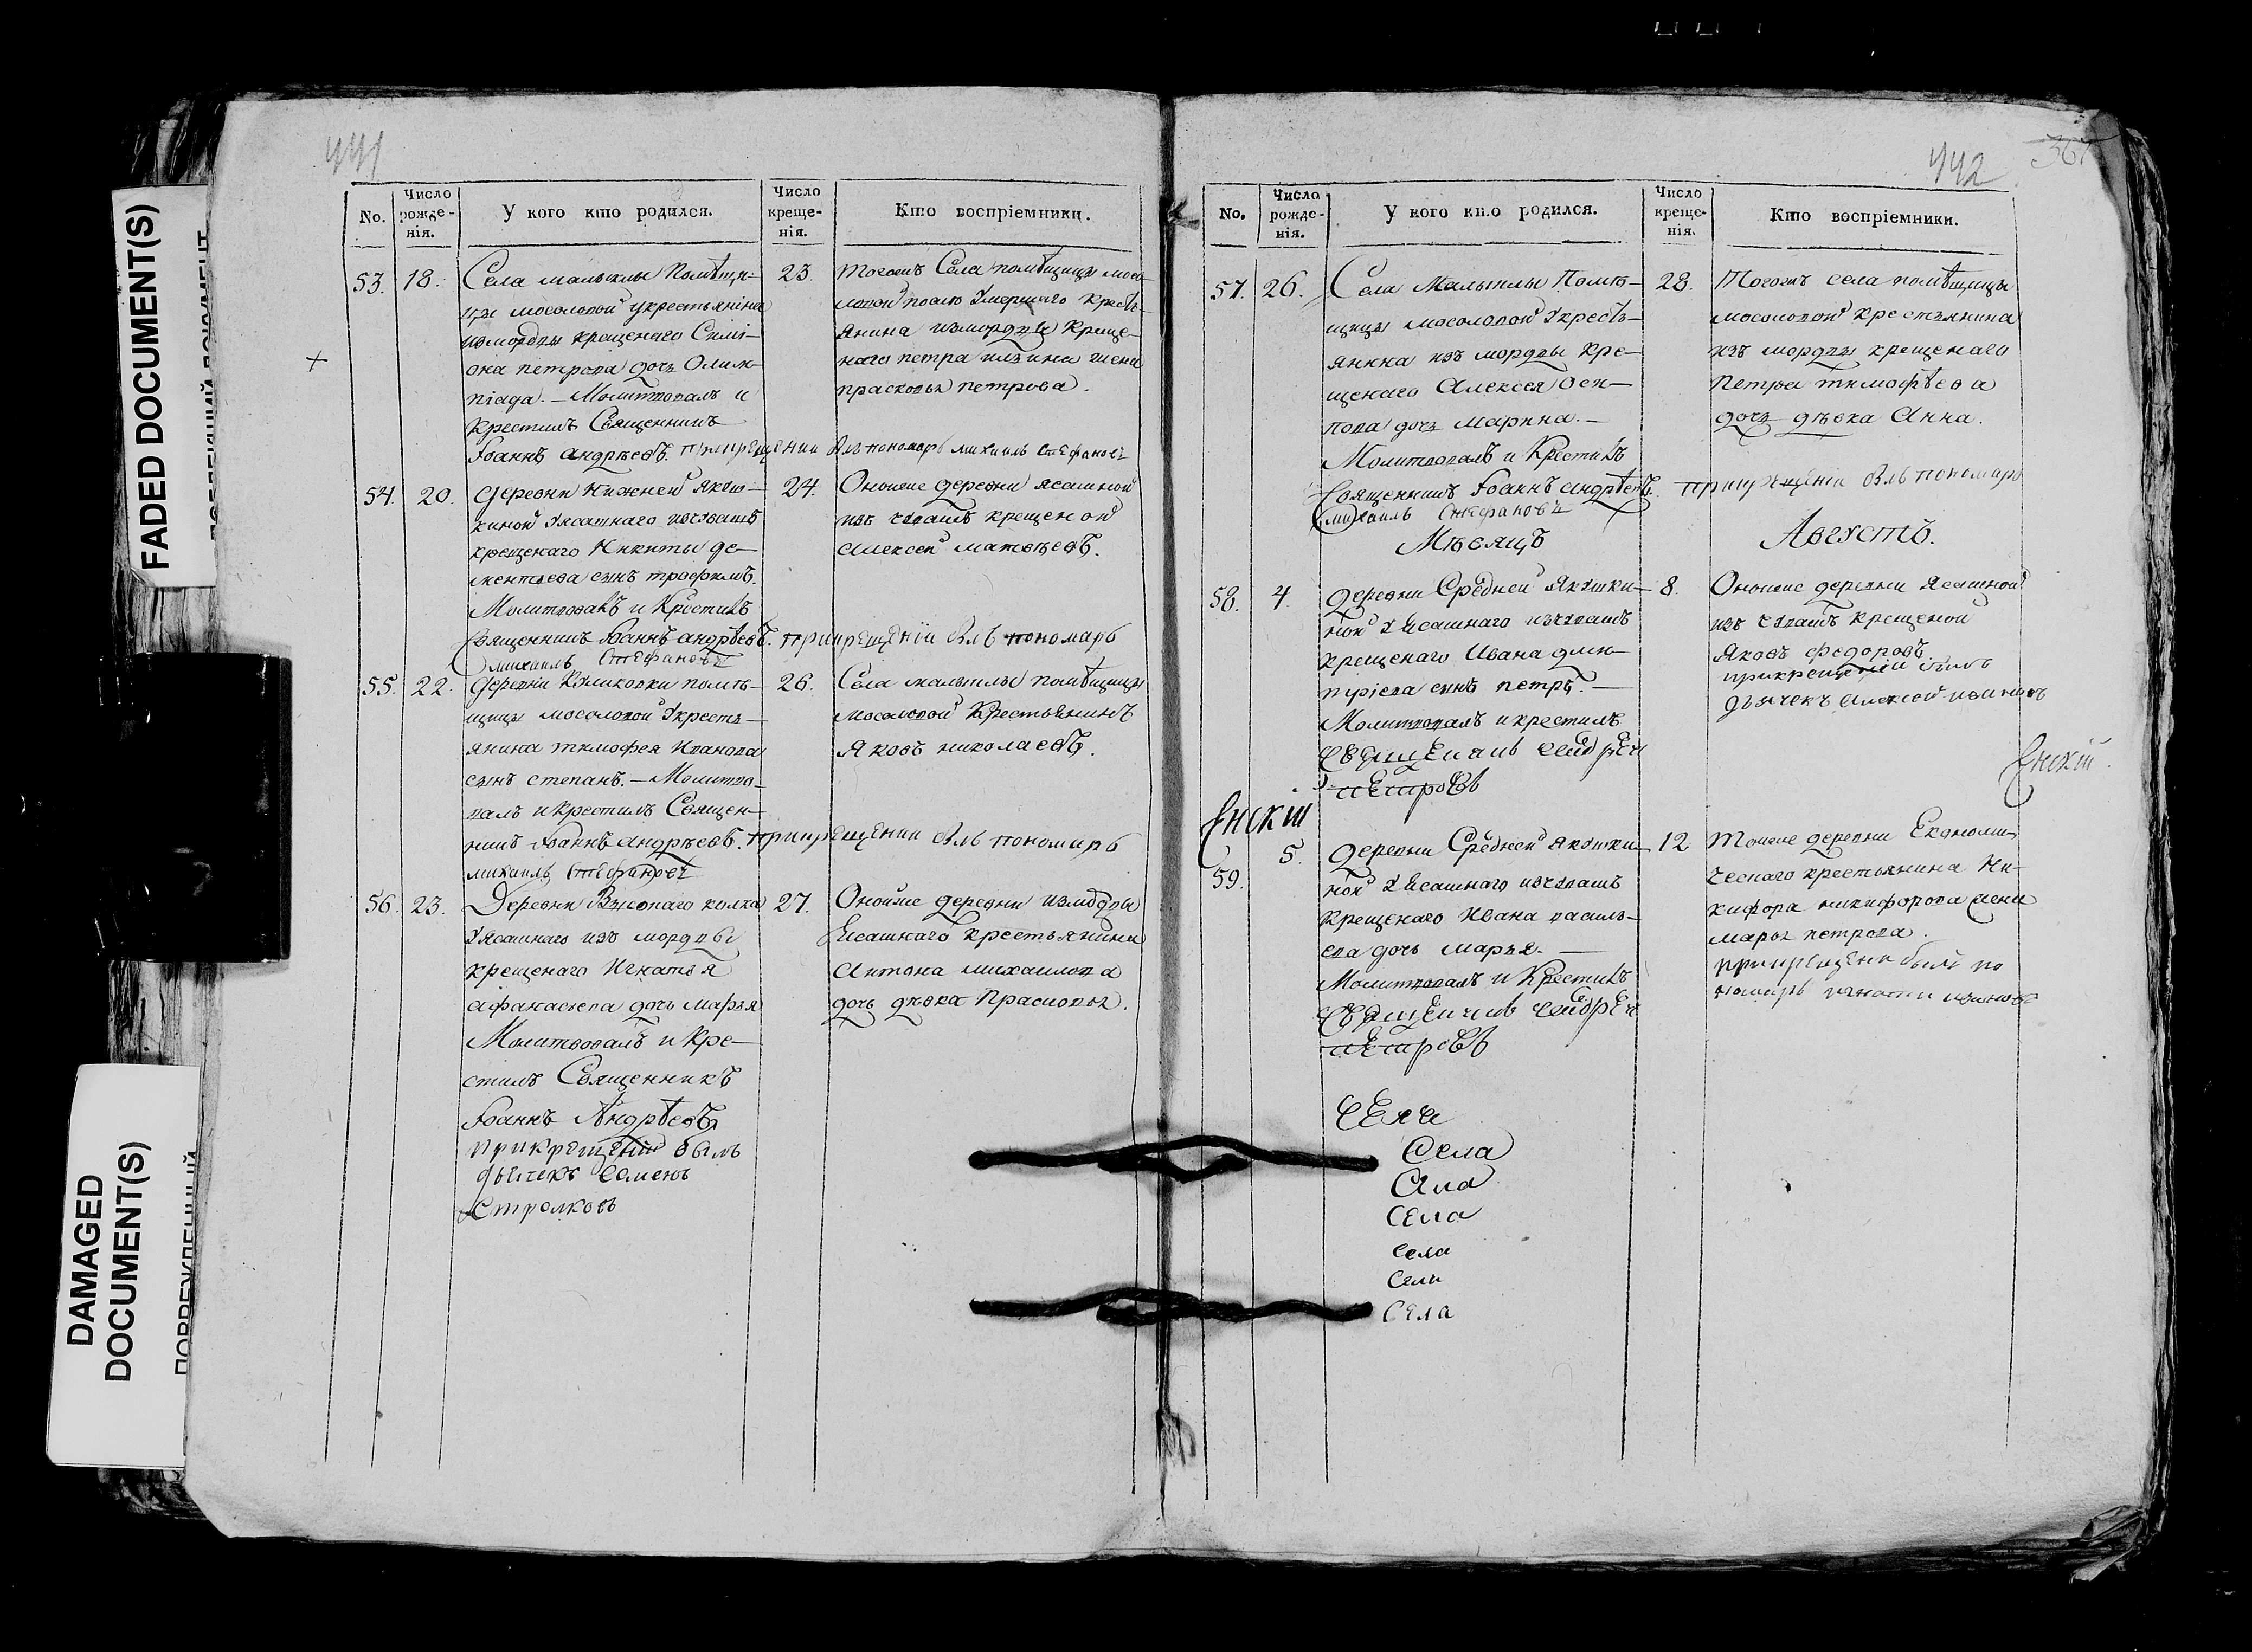 441
No.
Число рожде-нія.
У кого кто родился.
Число креще-нія.
Кто воспріемники.
53. 18.
Села малыклы Помѣщи-
цы мосоловой укрестьянина
измордвы крещенаго Симі-
она петрова дочь Олим-
піада. — Молитвовалъ и
Крестилъ Священникъ
Іоаннъ андрѣевъ. прикрещении былъ пономарь михаилъ Стефановъ
23.
тогожъ Села помѣщицы мосо-
ловой послѣ Умершаго Кресть-
янина измордвы Креще-
наго петра жена
прасковья петрова.
54. 20.
деревни Нижней Якуш-
киной Уясашнаго изчувашъ
крещенаго Никиты де-
ментьева сынъ трофимъ.
Молитвовалъ и Крестилъ
Священникъ Іоаннъ андрѣевъ. прикрещении былъ пономарь
михаилъ Стефановъ
24.
Оноиже деревни ясашной
изъ чувашъ крещеной
алексеи матвѣевъ.
55. 22.
деревни Куликовки помѣ-
щицы мосоловой Укресть-
янина тимофея Иванова
сынъ степанъ. — Молитво-
валъ икрестилъ Священ-
никъ Іоаннъ андрѣевъ. прикрещении былъ пономарь
михаилъ Стефановъ
26.
Села малыклы помѣщицы
мосоловой Крестьянинъ
Яковъ николаевъ.
56. 23.
Деревни Высокаго колка
Уясашнаго изъ мордвы
крещенаго Игнатья
афанасьева дочь марья
Молитвовалъ и Кре-
стилъ Священникъ
Іоаннъ Андрѣевъ
прикрещении былъ
дьячекъ Семенъ
Стрелковъ
27.
Оноиже деревни измордвы
Ясашнаго крестьянина
Антона михаилова
дочь дѣвка Прасковья.
442
367
No.
Число рожде-нія.
У кого кто родился.
Число креще-нія.
Кто воспріемники.
57. 26.
Села Малыклы Помѣ-
щицы мосоловой Укресть-
янина изъ мордвы кре-
щенаго Алексея Оси-
пова дочь марина. —
Молитвовалъ и Крестилъ
Священникъ Іоаннъ андрѣевъ. прикрещении былъ пономарь
михаилъ Стефановъ
28.
Тогожъ села помѣщицы
мосоловой крестьянина
изъ мордвы крещенаго
Петра тимофѣева
дочь дѣвка Анна.
Мѣсяцъ Августъ.
58. 4.
деревни Средней Якушки-
ной Уясашнаго изчувашъ
крещенаго Ивана дми-
тріева сынъ петръ. —
Молитвовалъ икрестилъ
священикъ андреи
петровъ
8.
Оноиже деревни Ясашной
изъ чувашъ крещеной
Яковъ федоровъ.
прикрещеніи былъ
дьячекъ Алексеи ивановъ
Енскій.
Енскій
59. 5.
деревни Средней якушки-
ной Уясашнаго изчувашъ
крещенаго Ивана василь-
ева дочь марья. —
Молитвовалъ и Крестилъ
священикъ андреи
петровъ
12.
Тоиже деревни Економи-
ческаго крестьянина Ни-
кифора никифорова жена
марья петрова.
прикрещени былъ по
номарь игнати ивановъ
села
Села
Села
Села
Села
Села
Села
FADED DOCUMENT(S)
DAMAGED
DOCUMENT(S)